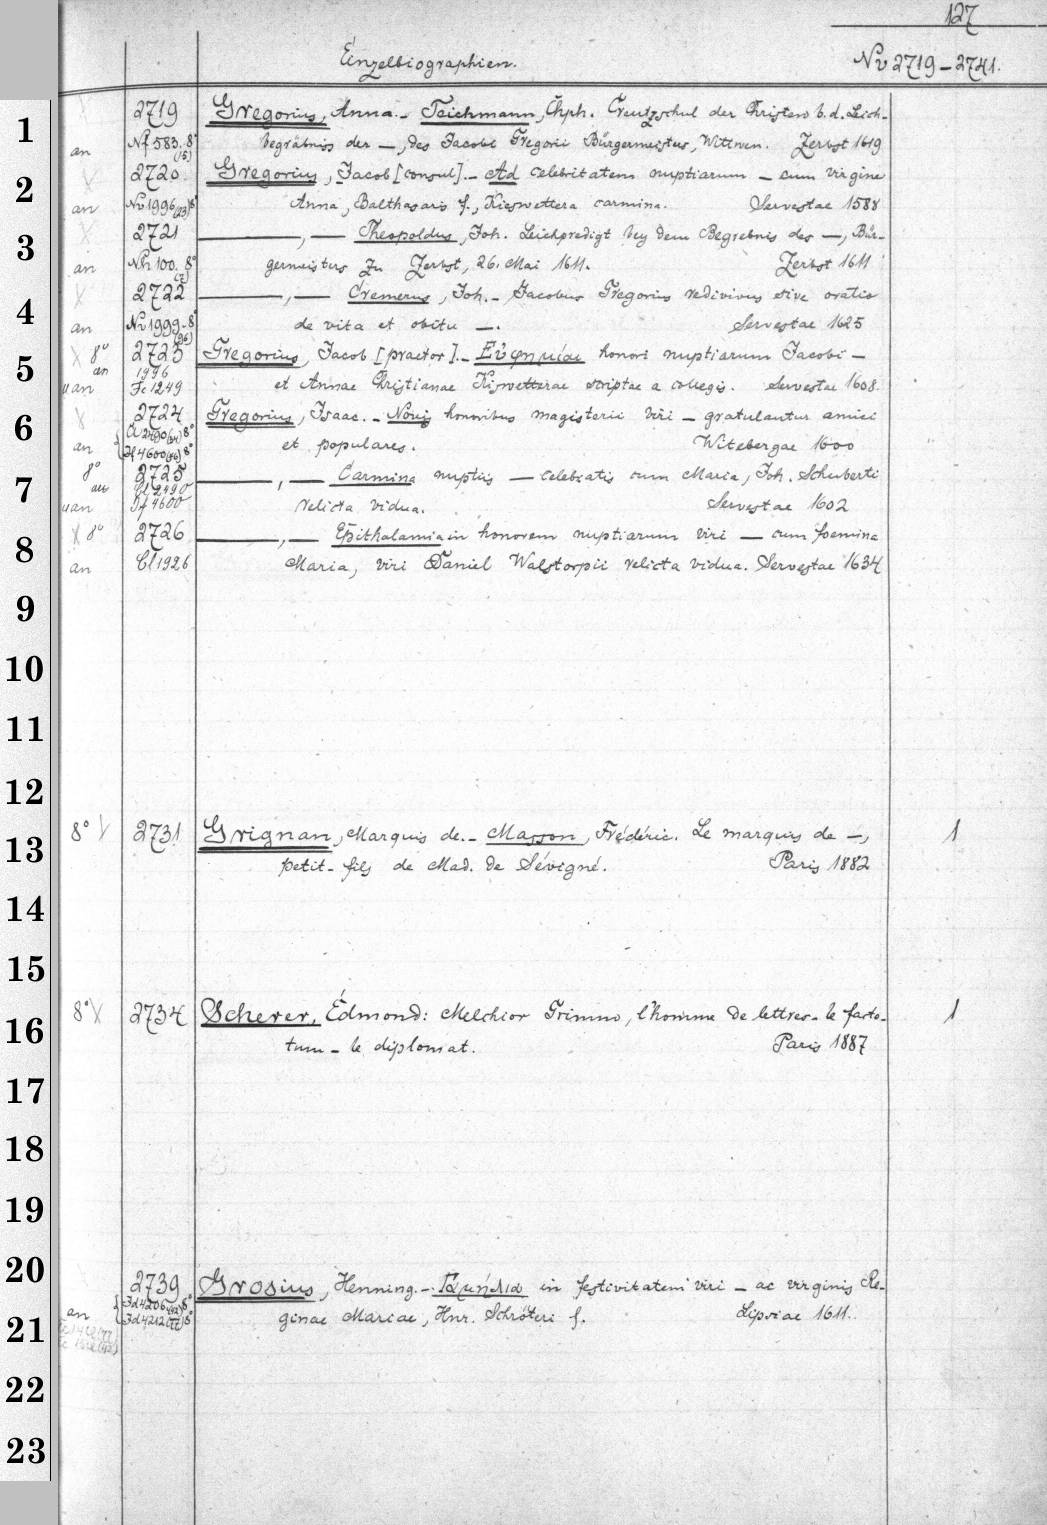 127
Einzelbiographien.
Nv 2719-2741.
1
2719 Gregorius, Anna. - Teichmann, Chph. Creutzschul der Christen b. d. Leich-
an Nf 583. 8° (15) begräbniss der —, des Jacobi Gregorii Bürgermeisters, Wittwen. Zerbst 1619
2
2720 Gregorius, Jacob [consul]. - Ad celebritatem nuptiarum — cum virgine
an Nv 1996 (23) 8° Anna, Balthasaris f., Kieswettera carmina. Servestae 1588
3
2721 —, — Theopoldus, Joh. Leichpredigt bey dem Begrebnis des —, Bür-
an Nh 100. 8° (2) germeisters zu Zerbst, 26. Mai 1611. Zerbst 1611
4
2722 —, — Cremerus, Joh. - Jacobus Gregorius redivivus sive oratio
an Nv 1999. 8° (96) de vita et obitu —. Servestae 1625
5
8° 2723 Gregorius, Jacob [praetor]. - Εὐφημίαι honori nuptiarum Jacobi —
an 1996
an Fc 1249 et Annae Christianae Kiswetterae scriptae a collegis. Servestae 1608.
6
2724 Gregorius, Isaac. - Novis honoribus magisterii viri — gratulantur amici
an 8° 4600 (56) 8° et populares. Witebergae 1600
7
8° 2725 —, — Carmina nuptiis — celebratis cum Maria, Joh. Schuberti
an Cl 2490
an 4600 relicta vidua. Servestae 1602
8
8° 2726 —, — Epithalamia in honorem nuptiarum viri — cum foemina
an Cl 1926 Maria, viri Daniel Walstorpii relicta vidua. Servestae 1634
9
10
11
12
13
8° 2731 Grignan, Marquis de. - Masson, Frédéric. Le marquis de —, 1
petit-fils de Mad. de Sévigné. Paris 1882
14
15
16
8° 2734 Scherer, Édmond: Melchior Grimm, l'homme de lettres - le facto- 1
tum - le diplomat. Paris 1887
17
18
19
20
2739 Grosius, Henning. - Γαμήλια in festivitatem viri — ac virginis Re-
an 3d 4206 (42) 8°
21
3d 4212 (22) 8° ginae Mariae, Hnr. Schröteri f. Lipsiae 1611.
22
23